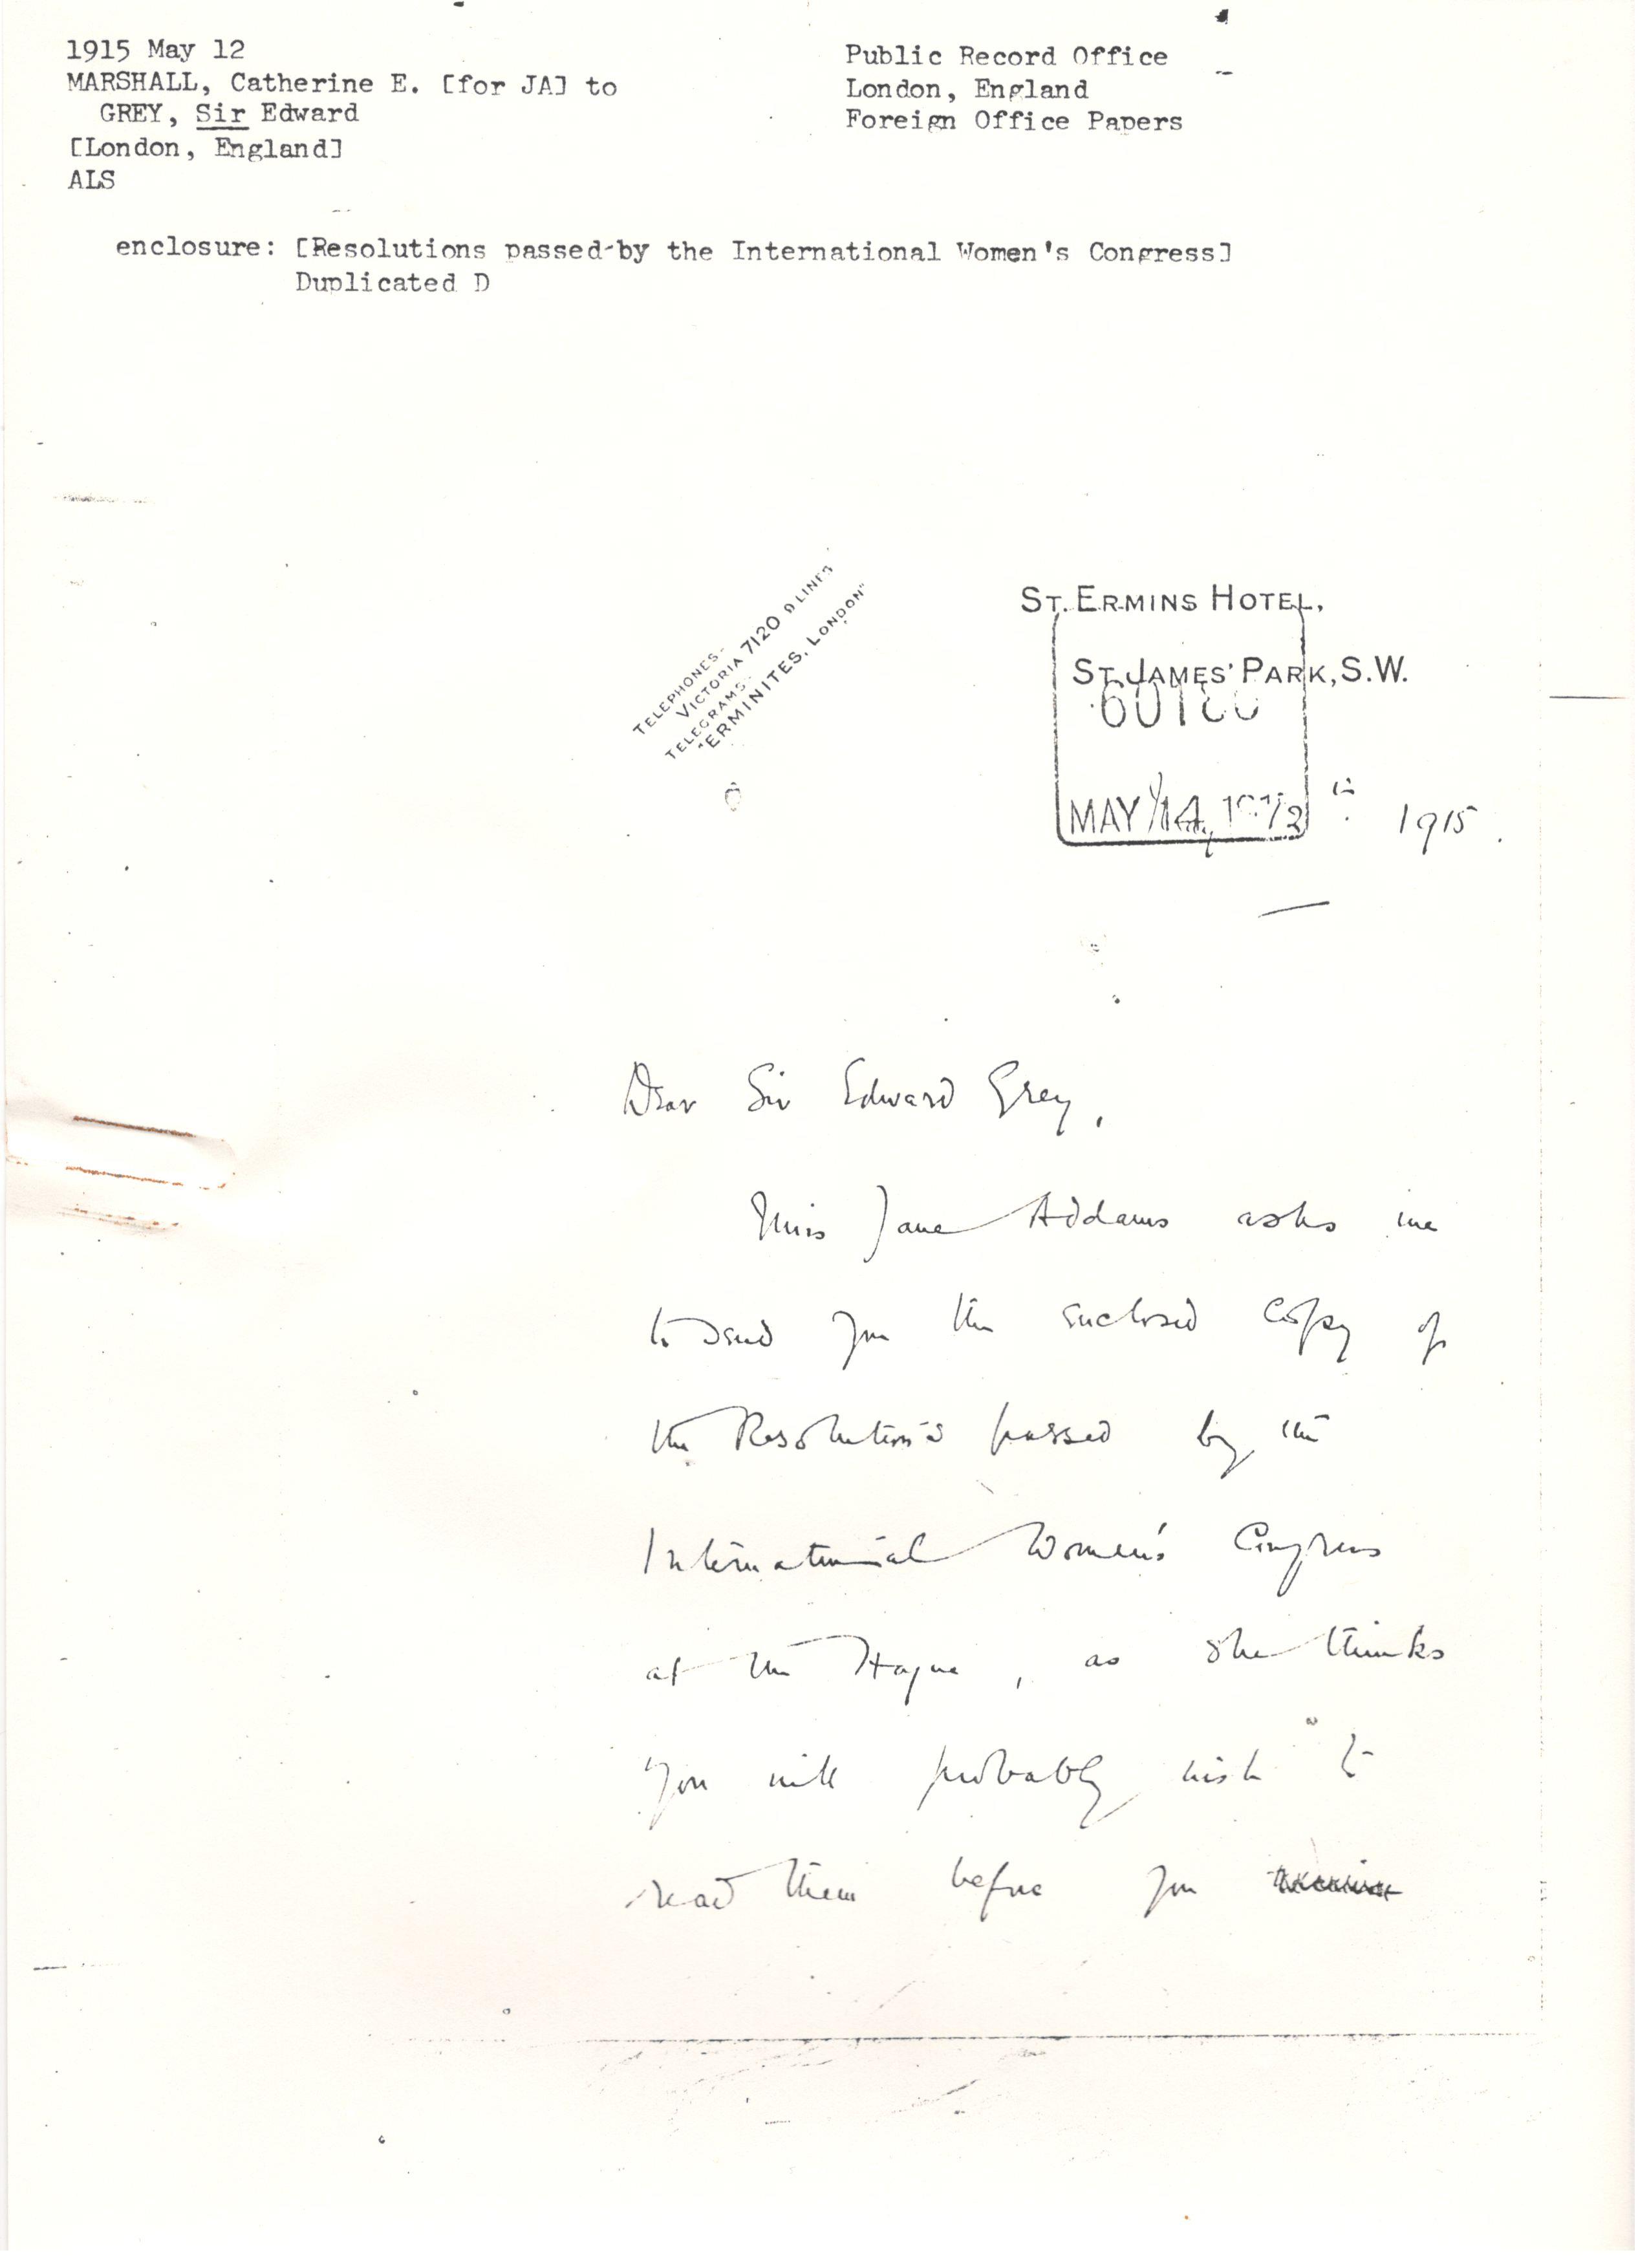 1915 May 12
MARSHALL, Catherine E. [for JA] to
GREY, Sir Edward
[London, England]
ALS
Public Record Office
London, England
Foreign Office Papers
enclosure: [Resolutions passed by the International Women's Congress]
Duplicated D
TELEPHONES-
VICTORIA 7120 LINES
TELEGRAMS-
"ERMINITES, LONDON"
ST. ERMINS HOTEL,
ST. JAMES' PARK, S.W.
MAY 14
1915.
Dear Sir Edward Grey,
Miss Jane Addams asks me
to send you the enclosed copy of
the Resolutions passed by the
International Women's Congress
at the Hague, as she thinks
you will probably wish to
read them before you